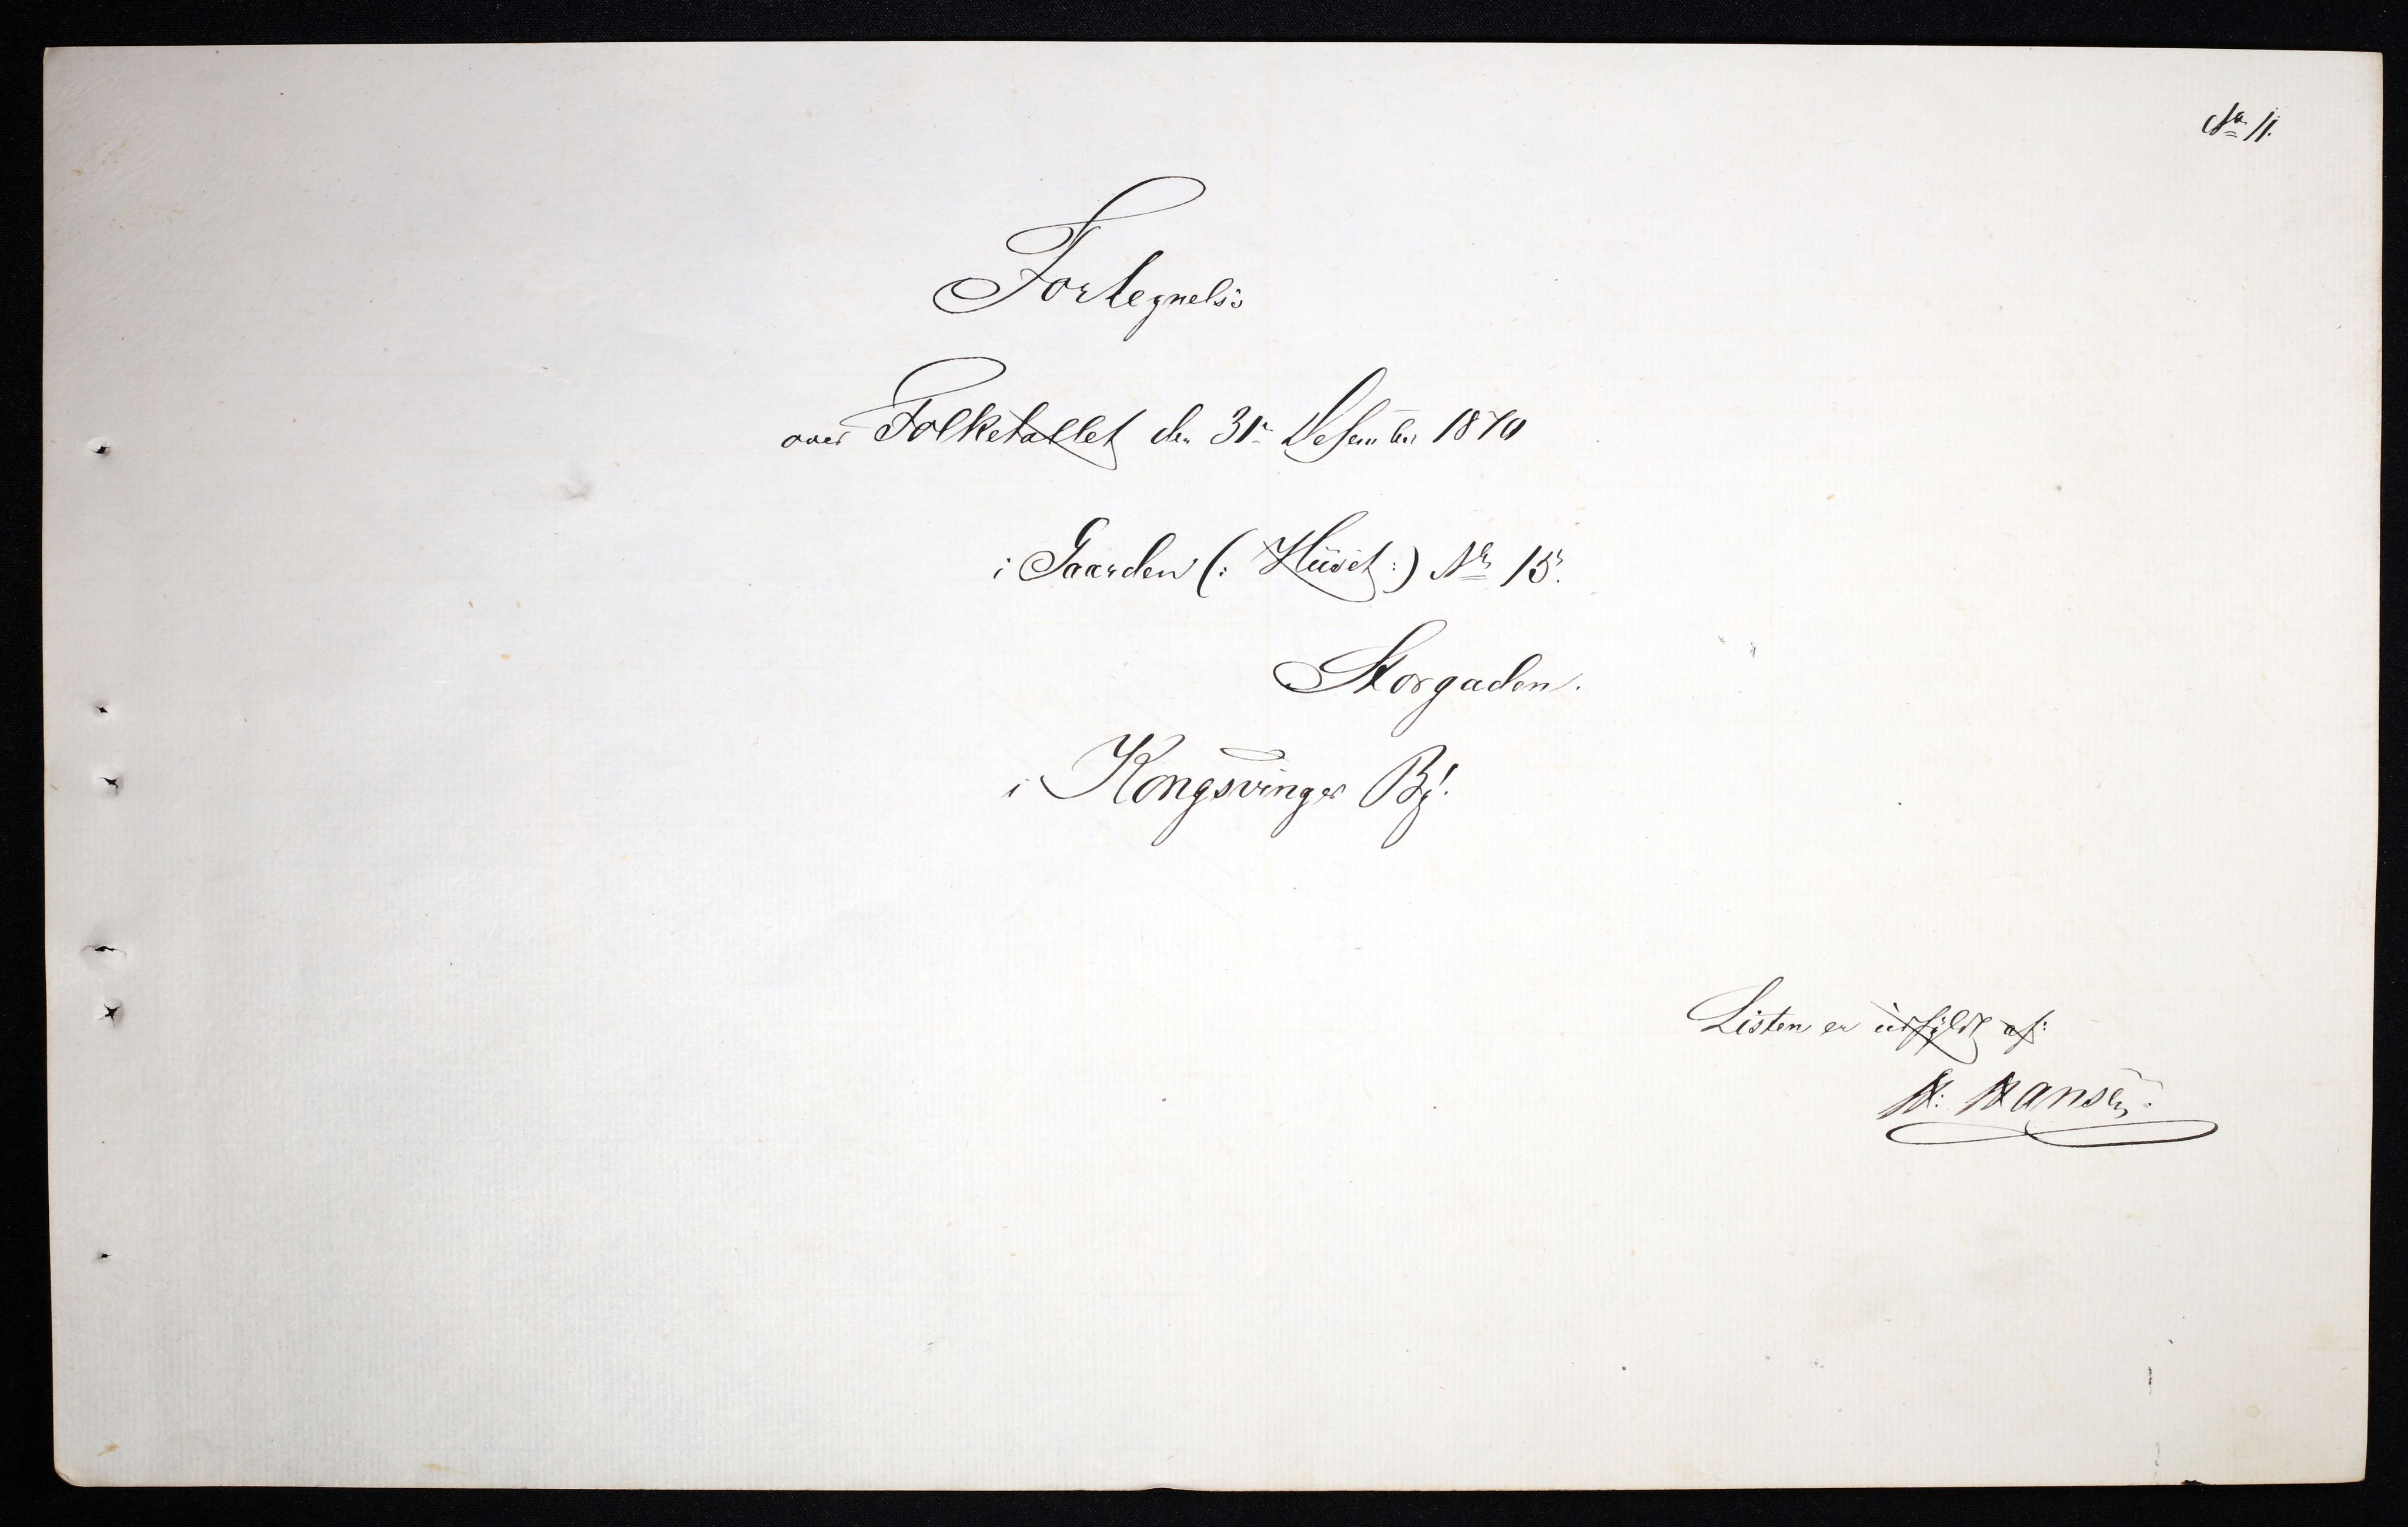 No 11.
Fortegnelse
over Folketallet den 31te Desember 1870
i Gaarden (: Huset :) No 15.
Storgaden.
i Kongsvinger By.
Listen er udfyldt af:
H: Hansen.